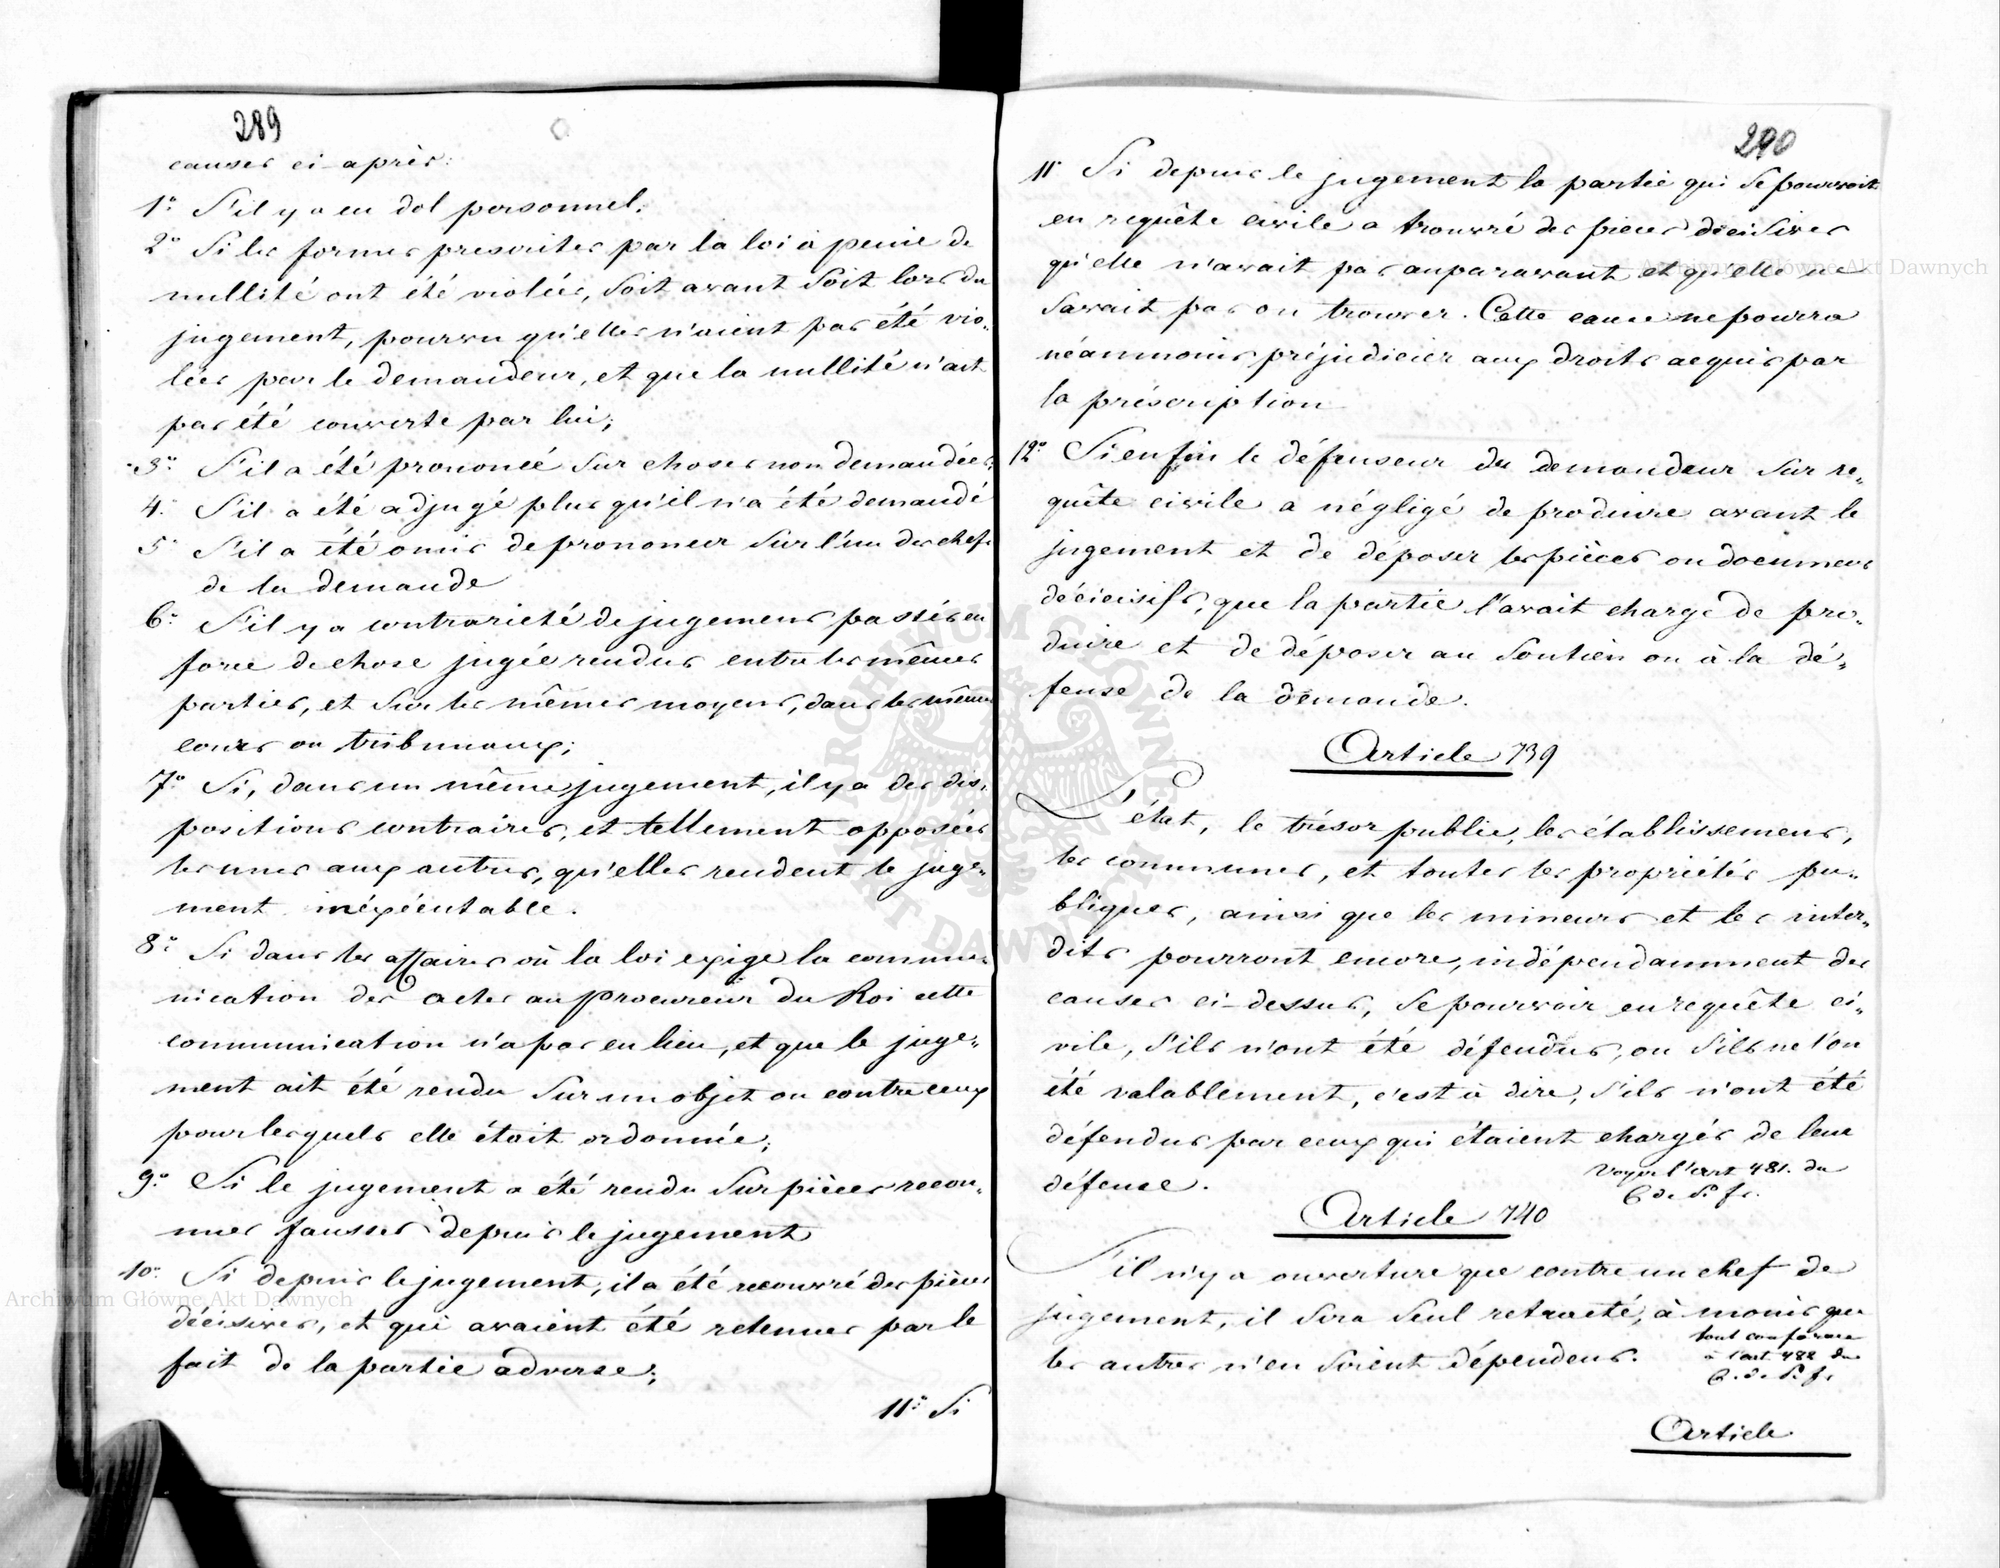 289
causes ci-après:
1° S'il y a eu dol personnel;
2° Si les formes prescrites par la loi à peine de
nullité ont été violées, soit avant soit lors du
jugement, pourvu qu'elles n'aient pas été vio„
lées par le demandeur, et que la nullité n'ait
pas été couverte par lui;
3° S'il a été prononcé sur choses non demandées;
4° S'il a été adjugé plus qu'il n'a été demandé
5° S'il a été omis de prononcer sur l'un des chefs
de la demande
6° S'il y a contrariété de jugemens passés en
force de chose jugée rendus entre les mêmes
parties, et sur les mêmes moyens, dans les mêmes
cours ou tribunaux;
7° Si, dans un même jugement, il y a des dis„
positions contraires, et tellement opposées
les unes aux autres, qu'elles rendent le juge„
ment inéxécutable.
8° Si dans les affaires où la loi exige la commu„
nication des actes au procureur du Roi cette
communication n'a pas eu lieu, et que le juge„
ment ait été rendu sur un objet ou contre ceux
pour lesquels elle était ordonnée;
9° Si le jugement a été rendu sur pièces recon„
nues fausses depuis le jugement
10° Si depuis le jugement, il a été recouvré des pièces
décisives, et qui avaient été retenues par le
fait de la partie adverse;
11° Si
290
11° Si depuis le jugement la partie qui se pourvoit
en requête civile a trouvé des pieces décisives
qu'elle n'avait pas auparavant et qu'elle ne
savait pas ou trouver. Cette cause ne pourra
néanmoins préjudicier aux droits acquis par
la préscription
12° Si enfin le défenseur du demandeur sur re„
quête civile a négligé de produire avant le
jugement et de déposer les pièces ou documens
décicisifs, que la partie l'avait chargé de pro„
duire et de déposer au soutien ou à la dé„
fense de la demande.
Article 739
L'état, le trésor public, les établissemens,
les communes, et toutes les propriétés pu„
bliques, ainsi que les mineurs et les inter„
dits pourront encore, indépendamment des
causes ci-dessus, se pourvoir en requête ci„
vile, s'ils n'ont été défendus, ou s'ils ne l'on
été valablement, c'est à dire, s'ils n'ont été
défendus par ceux qui étaient chargés de leur
défense.
Voyez l'art 481. du
C de P. fr.
Article 740
S'il n'y a ouverture que contre un chef de
jugement, il sera seul retracté, à moins que
les autres n'en soient dépendens.
tout conforme
à l'art. 482 du
C. de P. fr
Article
Archiwum Główne Akt Dawnych
Archiwum Główne Akt Dawnych
ARCHIWUM GŁÓWNE AKT DAWNYCH